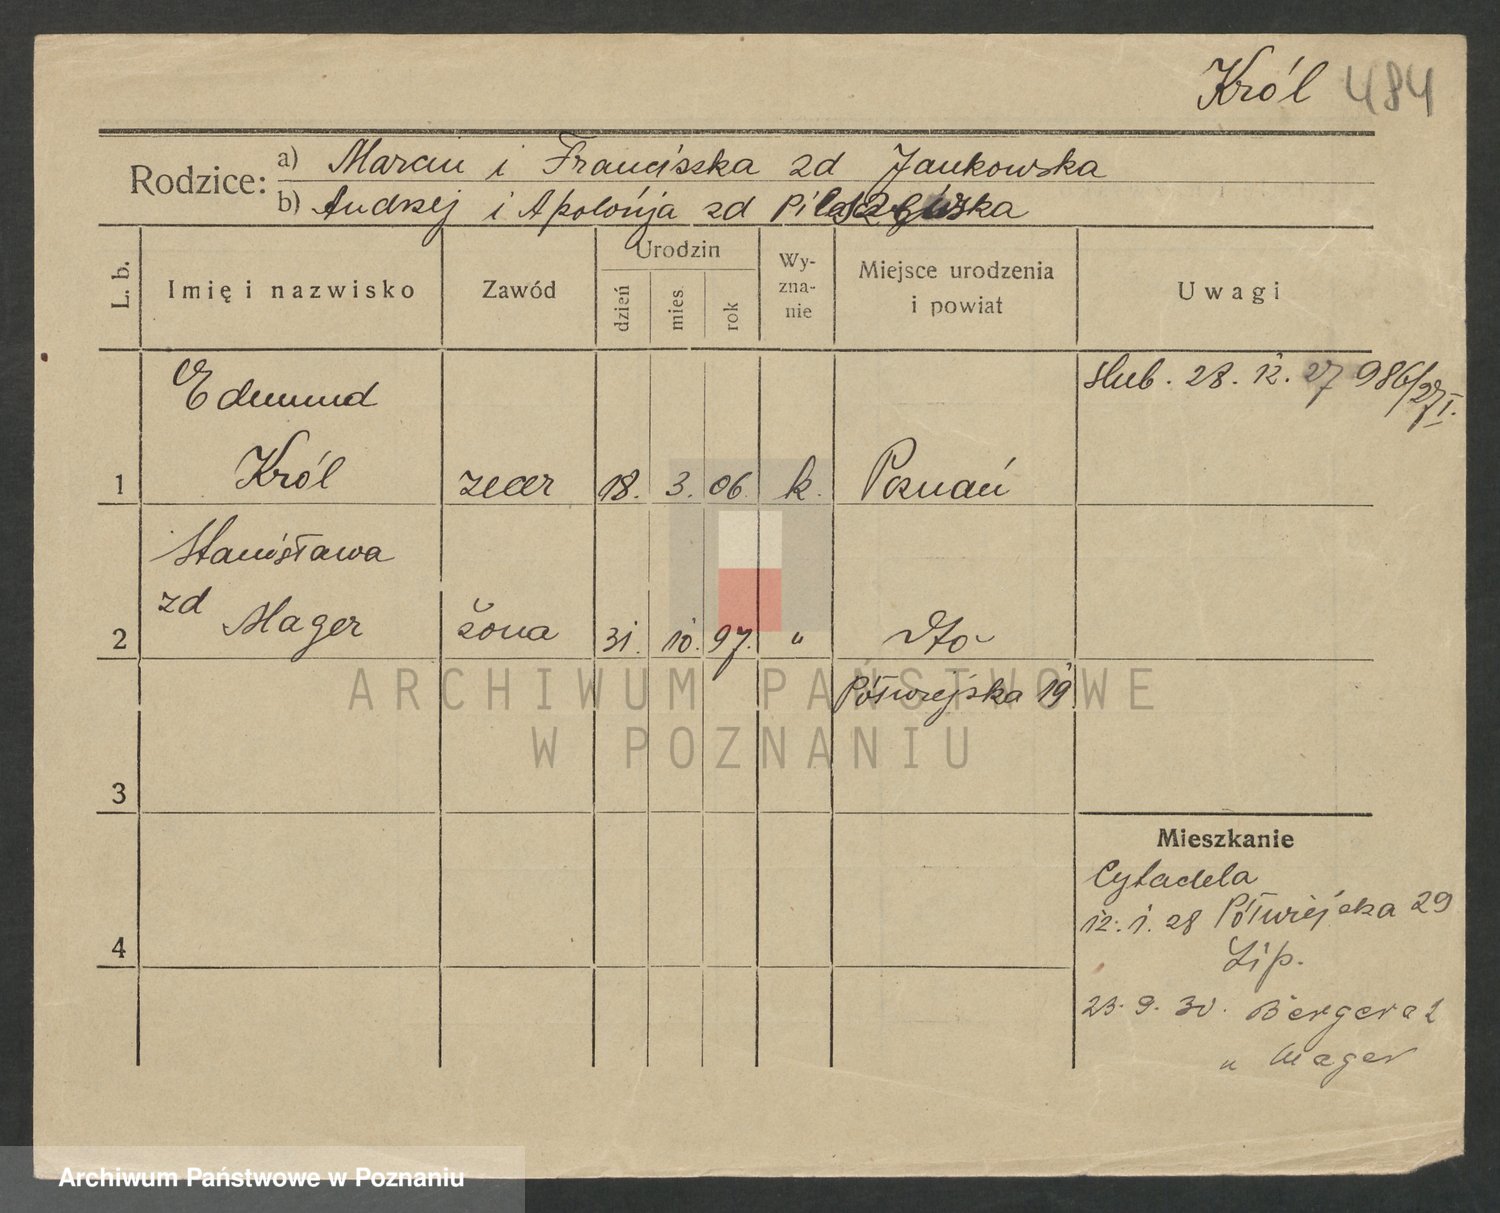 Król 484
Rodzice: a) Marcin i Franciszka zd Jankowska
b) Andrzej i Apolonja zd
L. b. Imię i nazwisko Zawód Urodzin Wy-zna-nie Miejsce urodzenia i powiat Uwagi
dzień mies. rok
Edmund ślub. 28. 12. 27 986/27 I.
1 Król zecer 18. 3. 06 k. Poznań
Stanisława
zd
2 Mager żona 31. 10. 97. " dto
Półwiejska 19
ARCHIWUM PAŃSTWOWE
W POZNANIU
3
Mieszkanie
Cytadela
12. 1. 28 Półwiejska 29
4
Lip.
23. 9. 30. Bergera 2
u Mager
Archiwum Państwowe w Poznaniu